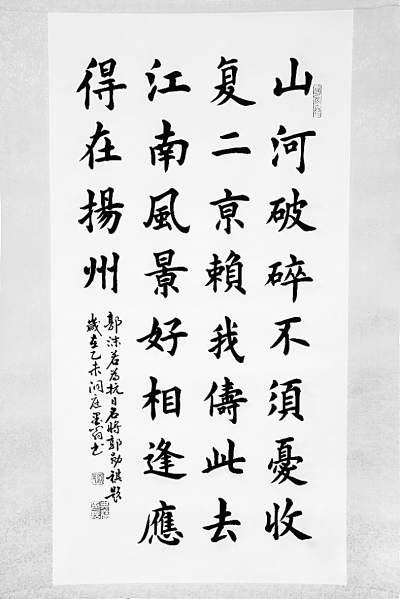 山河破碎不須憂收
复二京賴我儔此去
江南風景好相逢應
得在揚州
郭沫若為抗日名將郭勛祺題
歲在乙未洞庭墨翁书